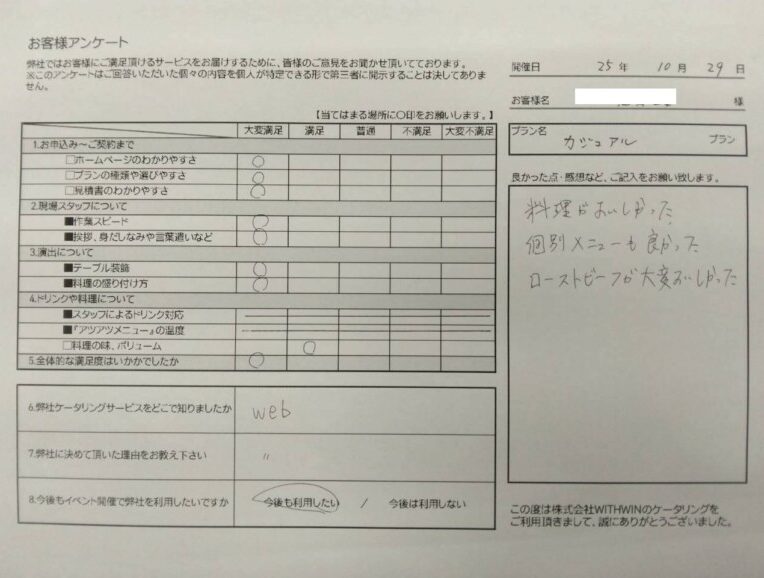 お客様アンケート
弊社ではお客様にご満足頂けるサービスをお届けするために、皆様のご意見をお聞かせ頂いております。
※このアンケートはご回答いただいた個々の内容を個人が特定できる形で第三者に開示することは決してありま
せん。
開催日 25 年 10 月 29 日
お客様名 様
プラン名 カジュアル プラン
【当てはまる場所に〇印をお願いします。】
大変満足 満足 普通 不満足 大変不満足
1.お申込み～ご契約まで
□ホームページのわかりやすさ ○
□プランの種類や選びやすさ ○
□見積書のわかりやすさ ○
2.現場スタッフについて
■作業スピード ○
■挨拶、身だしなみや言葉遣いなど ○
3.演出について
■テーブル装飾 ○
■料理の盛り付け方 ○
4.ドリンクや料理について
■スタッフによるドリンク対応
■『アツアツメニュー』の温度
□料理の味、ボリューム ○
5.全体的な満足度はいかかでしたか ○
6.弊社ケータリングサービスをどこで知りましたか web
7.弊社に決めて頂いた理由をお教え下さい 〃
8.今後もイベント開催で弊社を利用したいですか 今後も利用したい / 今後は利用しない
良かった点・感想など、ご記入をお願い致します。
料理がおいしかった
個別メニューも良かった
ローストビーフが大変おいしかった
この度は株式会社WITHWINのケータリングを
ご利用頂きまして、誠にありがとうございました。